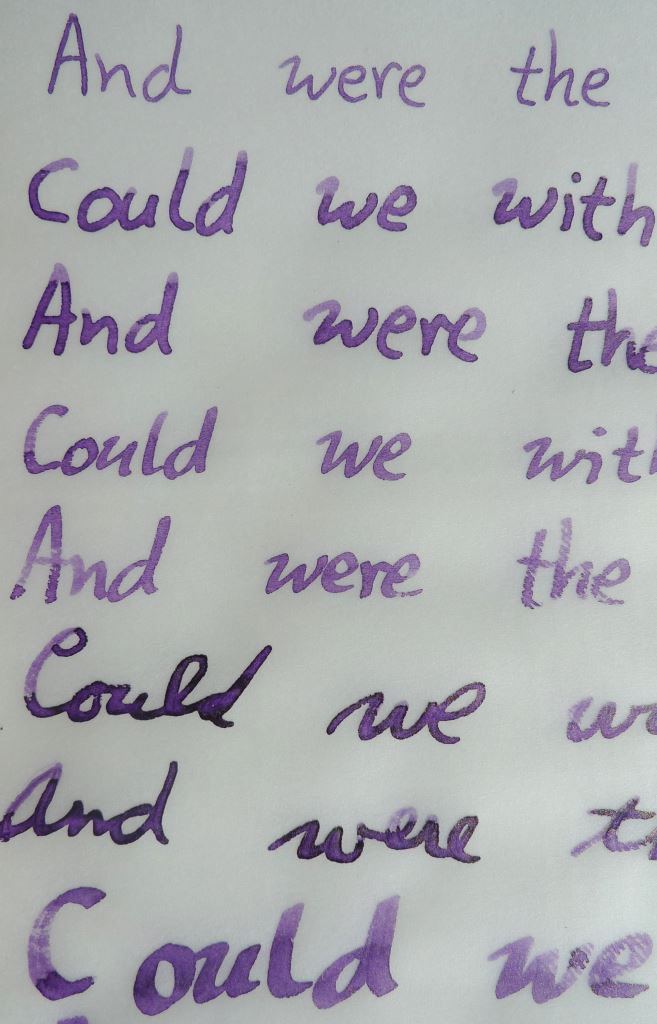 And were the
Could we with
And were the
Could we wit
And were the
Could we
And were
Could we